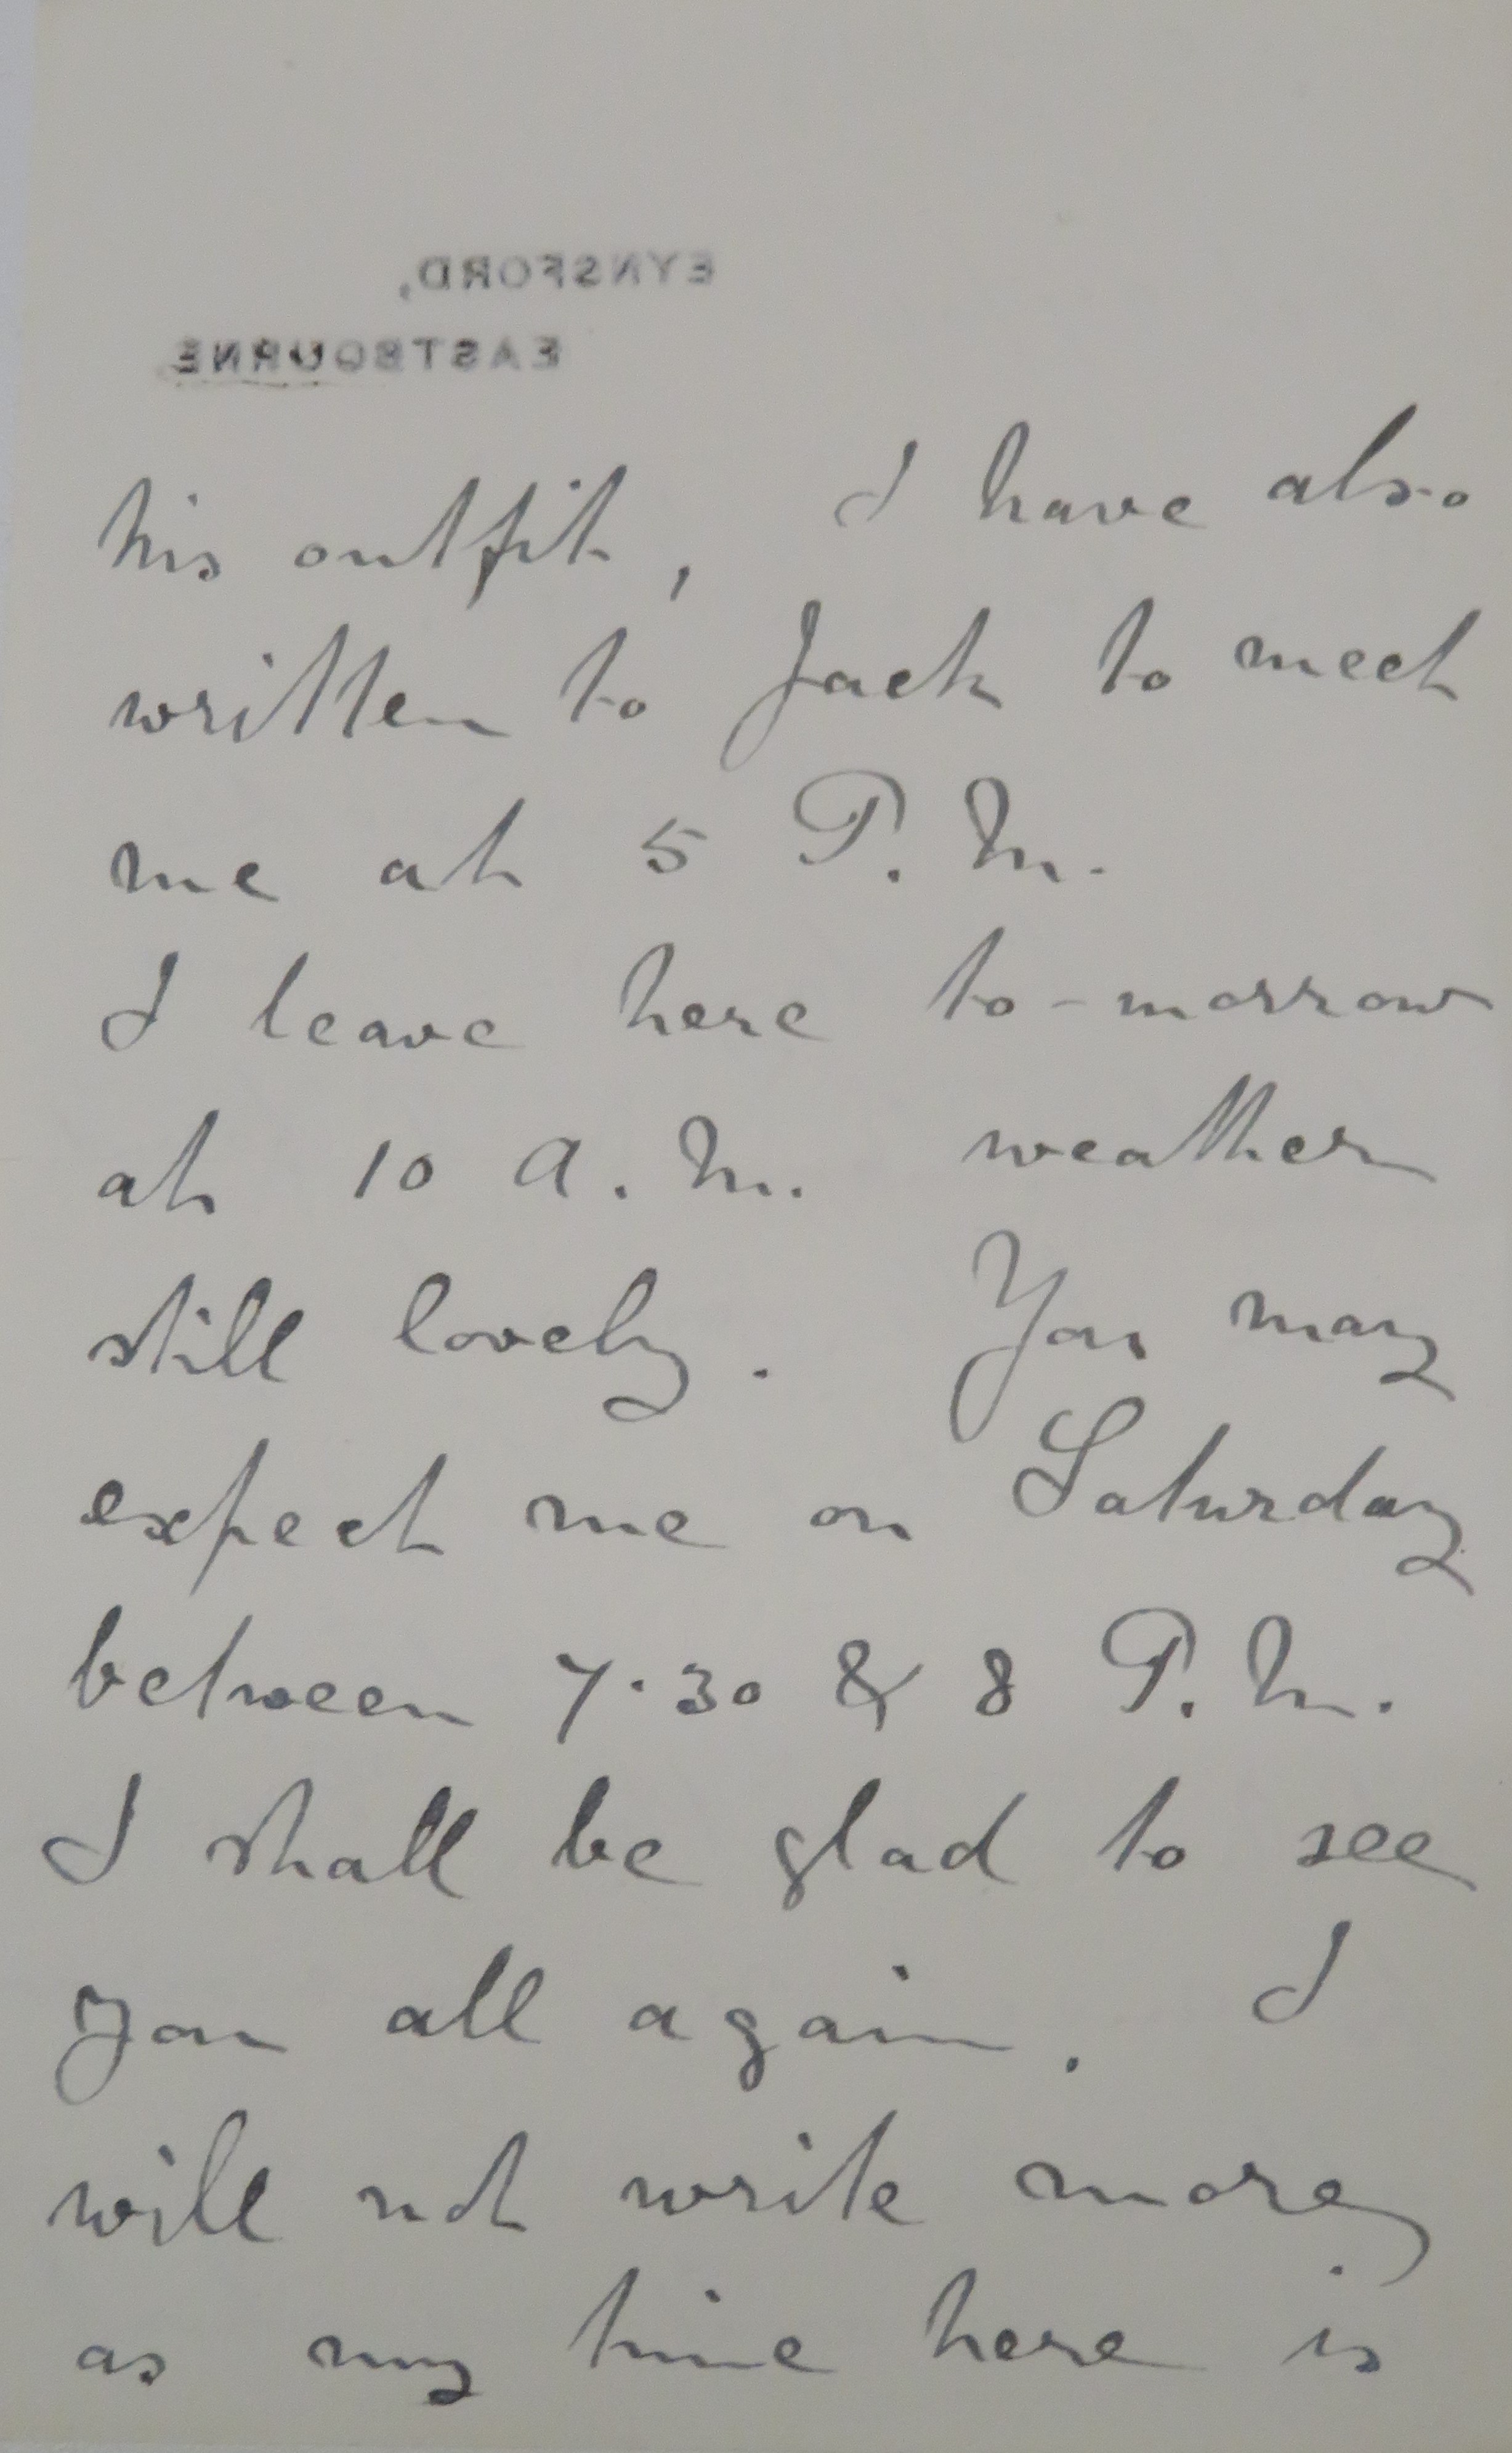 EYNSFORD,
EASTBOURNE
his outfit, I have also
written to Jack to meet
me at 5 P.M.
I leave here to-morrow
at 10 A.M. weather
still lovely. You may
expect me on Saturday
between 7.30 & 8 P.M.
I shall be glad to see
you all again. I
will not write more
as my time here is